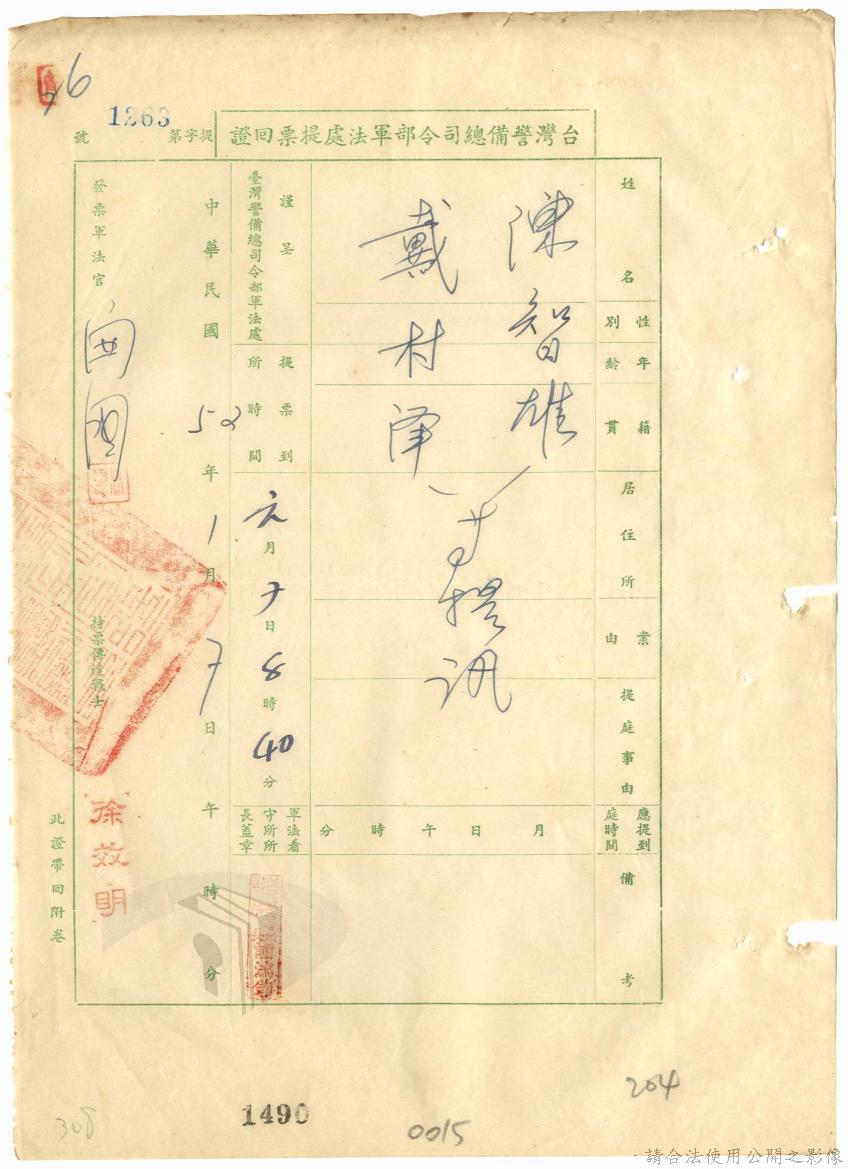 26
1263
台灣警備總司令部軍法處提票回證
提字第
號
姓名
性別
年齡
籍貫
居住所
案由
提庭事由
應提到庭時間
備考
陳智雄
戴村澤
等提訊
月 日 午 時 分
謹呈
臺灣警備總司令部軍法處
提票到所時間
元月 7 日 8 時 40 分
軍法看守所所長蓋章
中華民國 52 年 1 月 7 日 午 時 分
發票軍法官
持票傳達戰士
徐效明
此證帶回附卷
308
1490
0015
204
請合法使用公開之影像